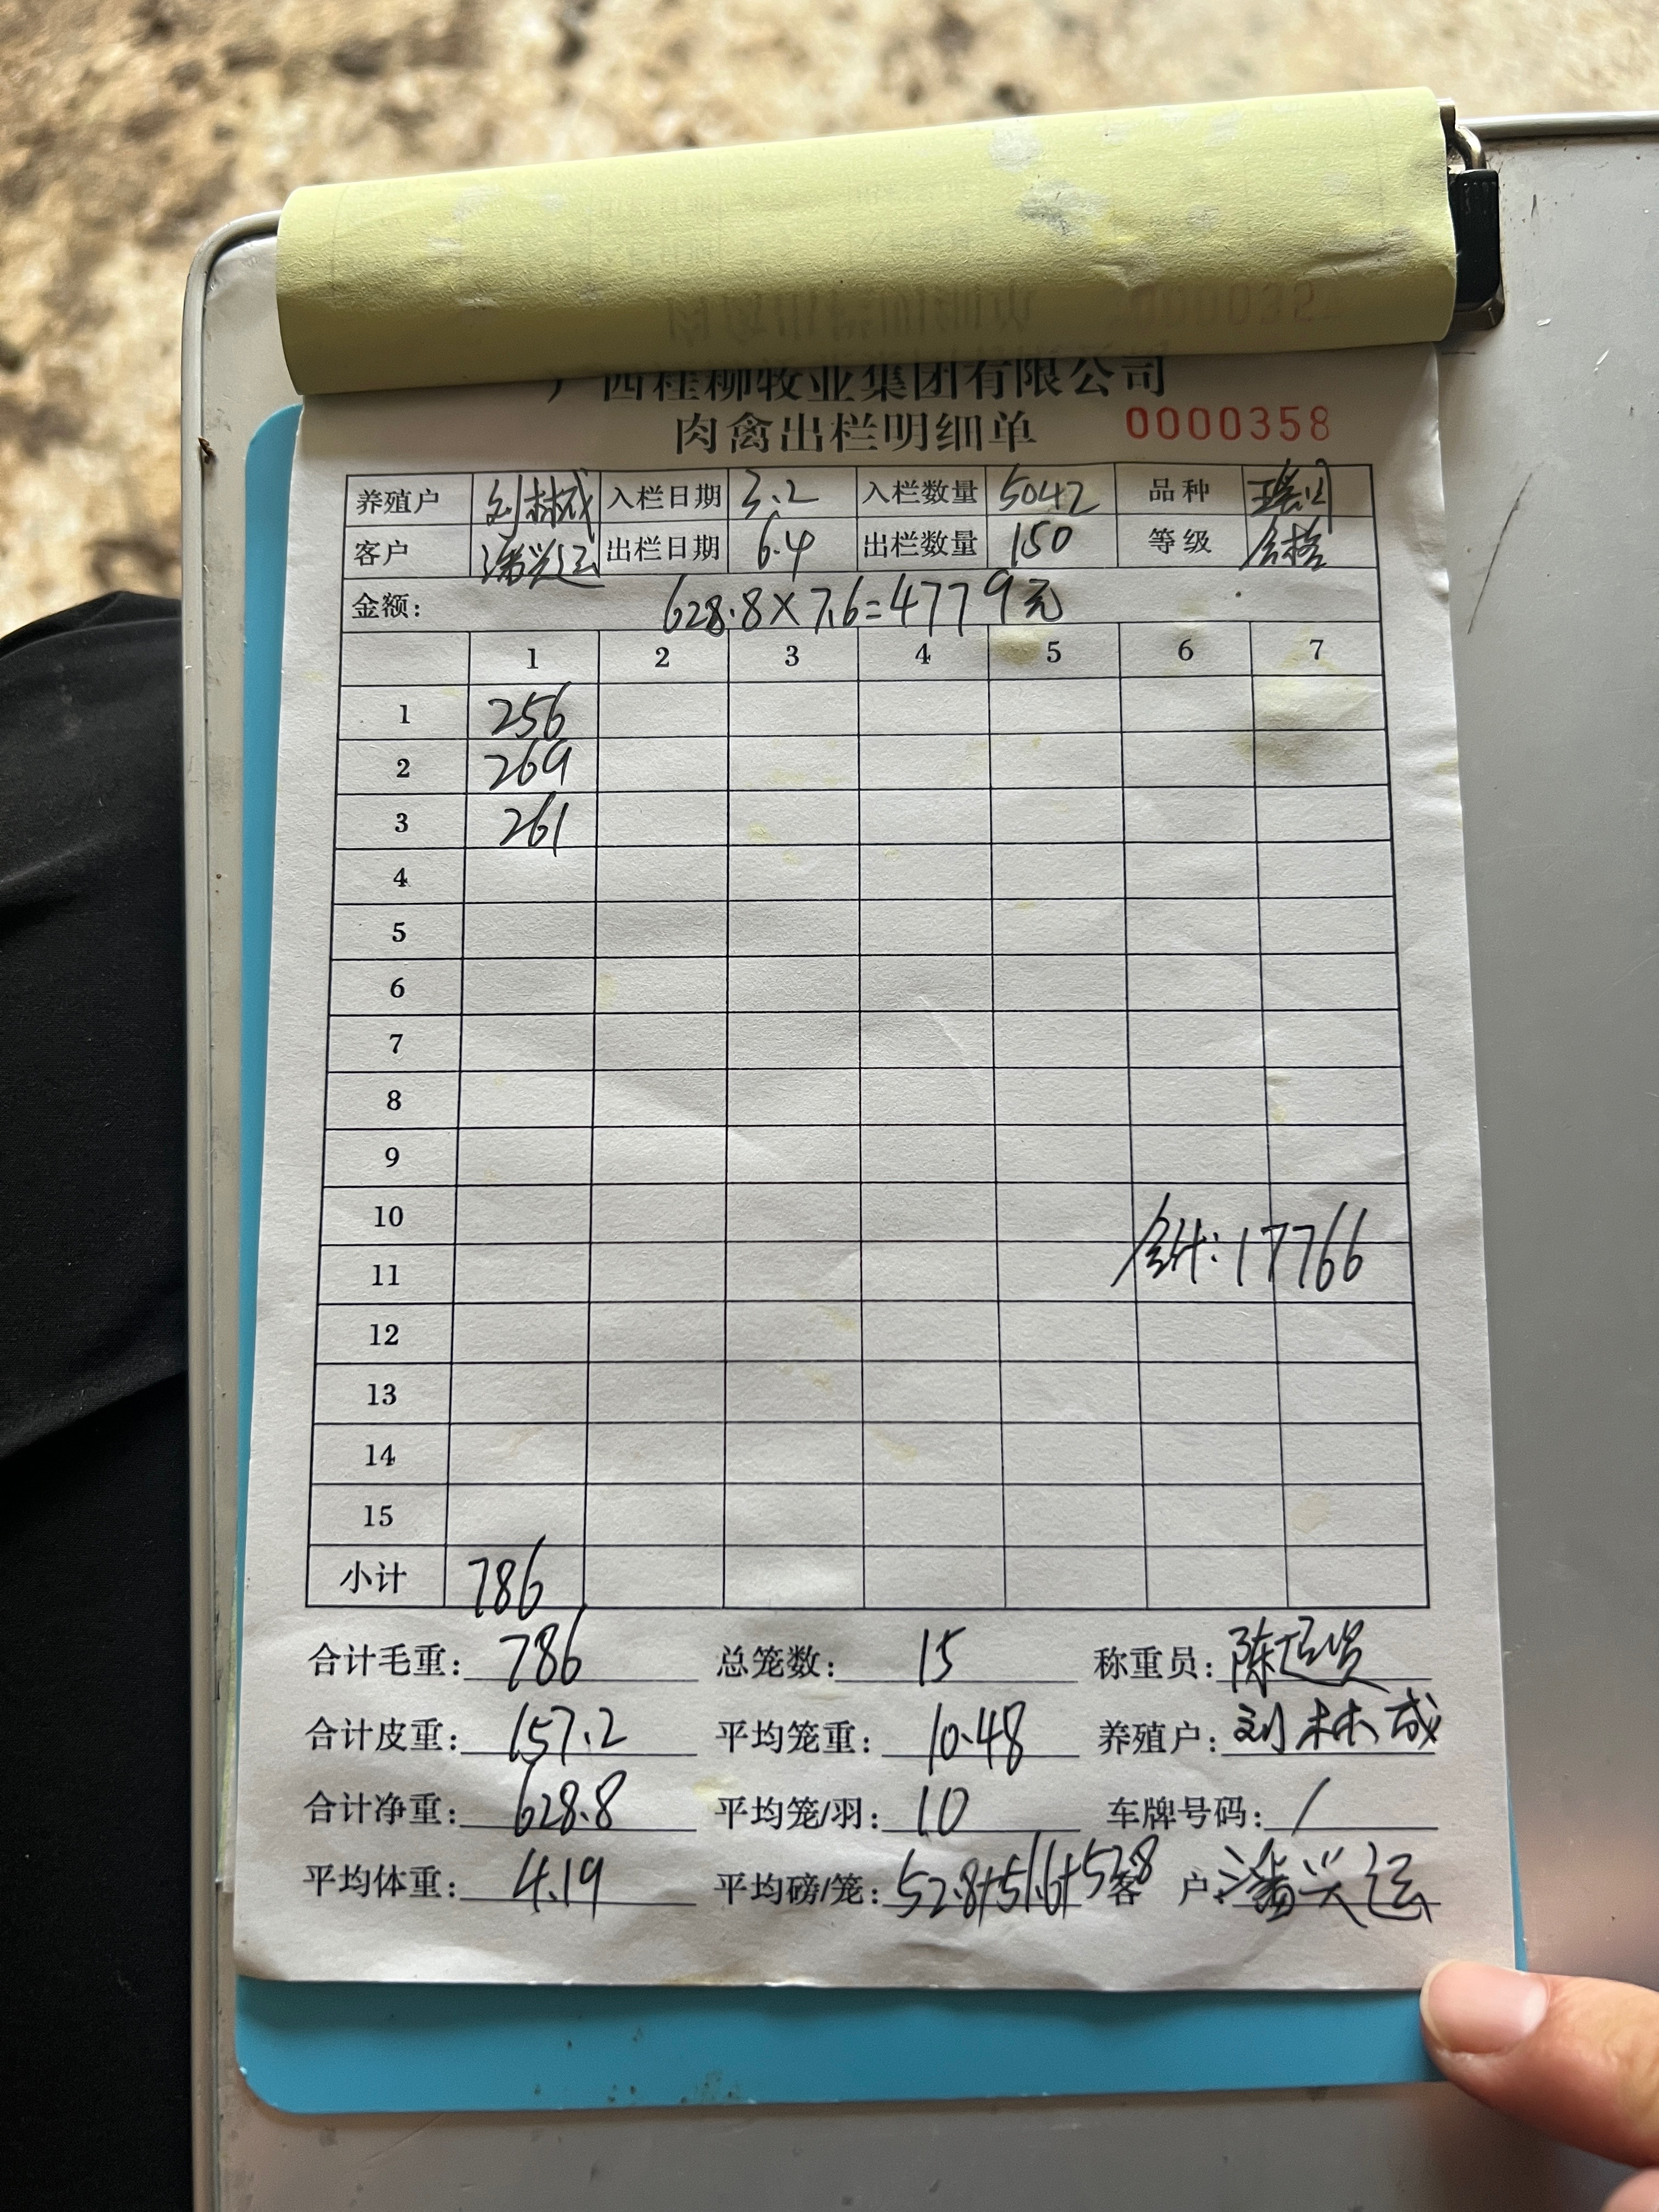 广西桂柳牧业集团有限公司
肉禽出栏明细单 0000358
养殖户 刘林成 入栏日期 3.2 入栏数量 5042 品种 瑶鸡
客户 潘兴运 出栏日期 6.4 出栏数量 150 等级 合格
金额: 628.8×7.6=4779元
1 2 3 4 5 6 7
1 256
2 269
3 261
4
5
6
7
8
9
10
合计:17766
11
12
13
14
15
小计 786
合计毛重: 786 总笼数: 15 称重员: 陈
合计皮重: 157.2 平均笼重: 10.48 养殖户: 刘林成
合计净重: 628.8 平均笼/羽: 10 车牌号码: /
平均体重: 4.19 平均磅/笼: 52.8+51.6+52.8 客户: 潘兴运